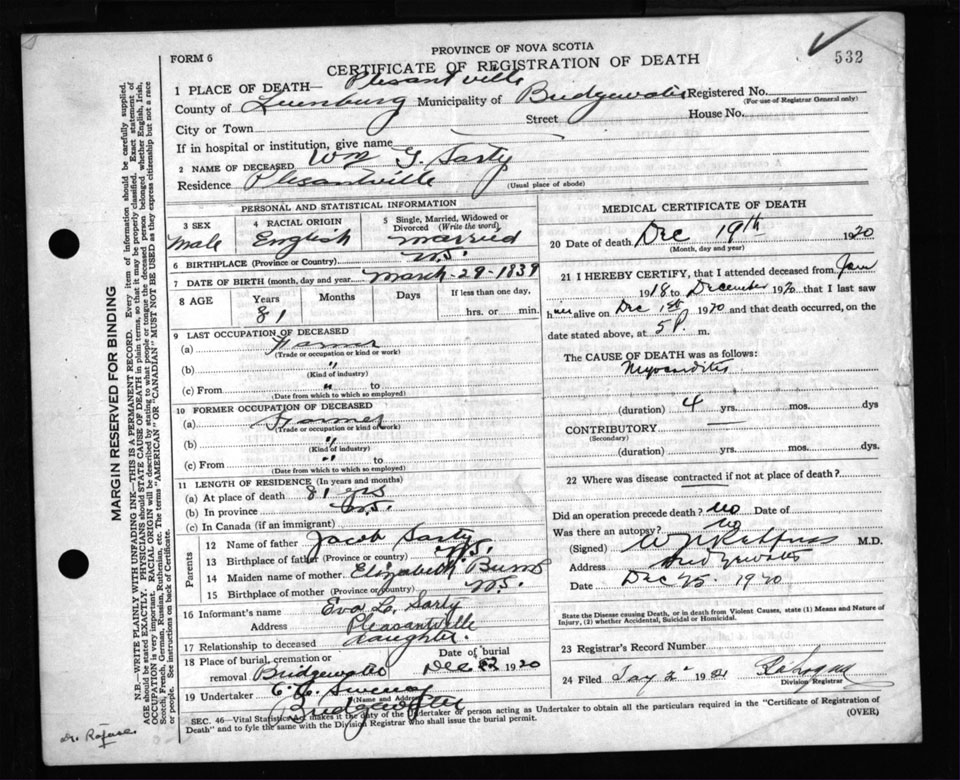 PROVINCE OF NOVA SCOTIA
FORM 6
CERTIFICATE OF REGISTRATION OF DEATH
532
1 PLACE OF DEATH— Pleasantville
County of Lunenburg Municipality of Bridgewater Registered No.
(For use of Registrar General only)
City or Town Street House No.
If in hospital or institution, give name
2 NAME OF DECEASED Wm G. Sarty
Residence Plesantville (Usual place of abode)
PERSONAL AND STATISTICAL INFORMATION
3 SEX
Male
4 RACIAL ORIGIN
English
5 Single, Married, Widowed or Divorced (Write the word)
Married
6 BIRTHPLACE (Province or Country) N.S.
7 DATE OF BIRTH (month, day and year) March-29-1839
8 AGE Years Months Days If less than one day,
81 hrs. or min.
9 LAST OCCUPATION OF DECEASED
(a) Farmer
(Trade or occupation or kind or work)
(b) "
(Kind of industry)
(c) From " to
(Date from which to which so employed)
10 FORMER OCCUPATION OF DECEASED
(a) Farmer
(Trade or occupation or kind of work)
(b) "
(Kind of industry)
(c) From " to
(Date from which to which so employed)
11 LENGTH OF RESIDENCE (In years and months)
(a) At place of death 81 yrs
(b) In province
(c) In Canada (if an immigrant)
Parents
12 Name of father Jacob Sarty
13 Birthplace of father (Province or country) N.S.
14 Maiden name of mother Elizabeth
15 Birthplace of mother (Province or country) N.S.
16 Informant's name Eva L. Sarty
Address Pleasantville
17 Relationship to deceased daughter.
18 Place of burial, cremation or removal Bridgewater
Date of burial
Dec 1920
19 Undertaker
(Name and Address)
Bridgewater
MEDICAL CERTIFICATE OF DEATH
20 Date of death Dec 19th 1920
(Month, day and year)
21 I HEREBY CERTIFY, that I attended deceased from Jan
1918 to December 1920 that I last saw
h alive on Dec 1st 1920 and that death occurred, on the
date stated above, at 5 P. m.
The CAUSE OF DEATH was as follows:
Myocarditis
(duration) 4 yrs. mos. dys
CONTRIBUTORY
(Secondary)
(duration) yrs. mos. dys.
22 Where was disease contracted if not at place of death?
Did an operation precede death? no Date of
Was there an autopsy? No
(Signed) M.D.
Address Bridgewater
Date Dec 25. 1920
State the Disease causing Death, or in death from Violent Causes, state (1) Means and Nature of
Injury, (2) whether Accidental, Suicidal or Homicidal.
23 Registrar's Record Number
24 Filed
Division Registrar
SEC. 46—Vital Statistics Act makes it the duty of the Undertaker or person acting as Undertaker to obtain all the particulars required in the "Certificate of Registration of
Death" and to fyle the same with the Division Registrar who shall issue the burial permit.
(OVER)
MARGIN RESERVED FOR BINDING
N.B.—WRITE PLAINLY WITH UNFADING INK—THIS IS A PERMANENT RECORD. Every item of information should be carefully supplied.
AGE should be stated EXACTLY. PHYSICIANS should STATE CAUSE OF DEATH in plain terms, so that it may be properly classified. Exact statement of
OCCUPATION is very important. RACIAL ORIGIN will be described by stating to what people or tongue the deceased person belonged whether English, Irish,
Scotch, French, German, Russian, Ruthenian, etc. The terms "AMERICAN" OR "CANADIAN" MUST NOT BE USED as they express citizenship but not a race
or people. See instructions on back of Certificate.
Dr. Rafuse